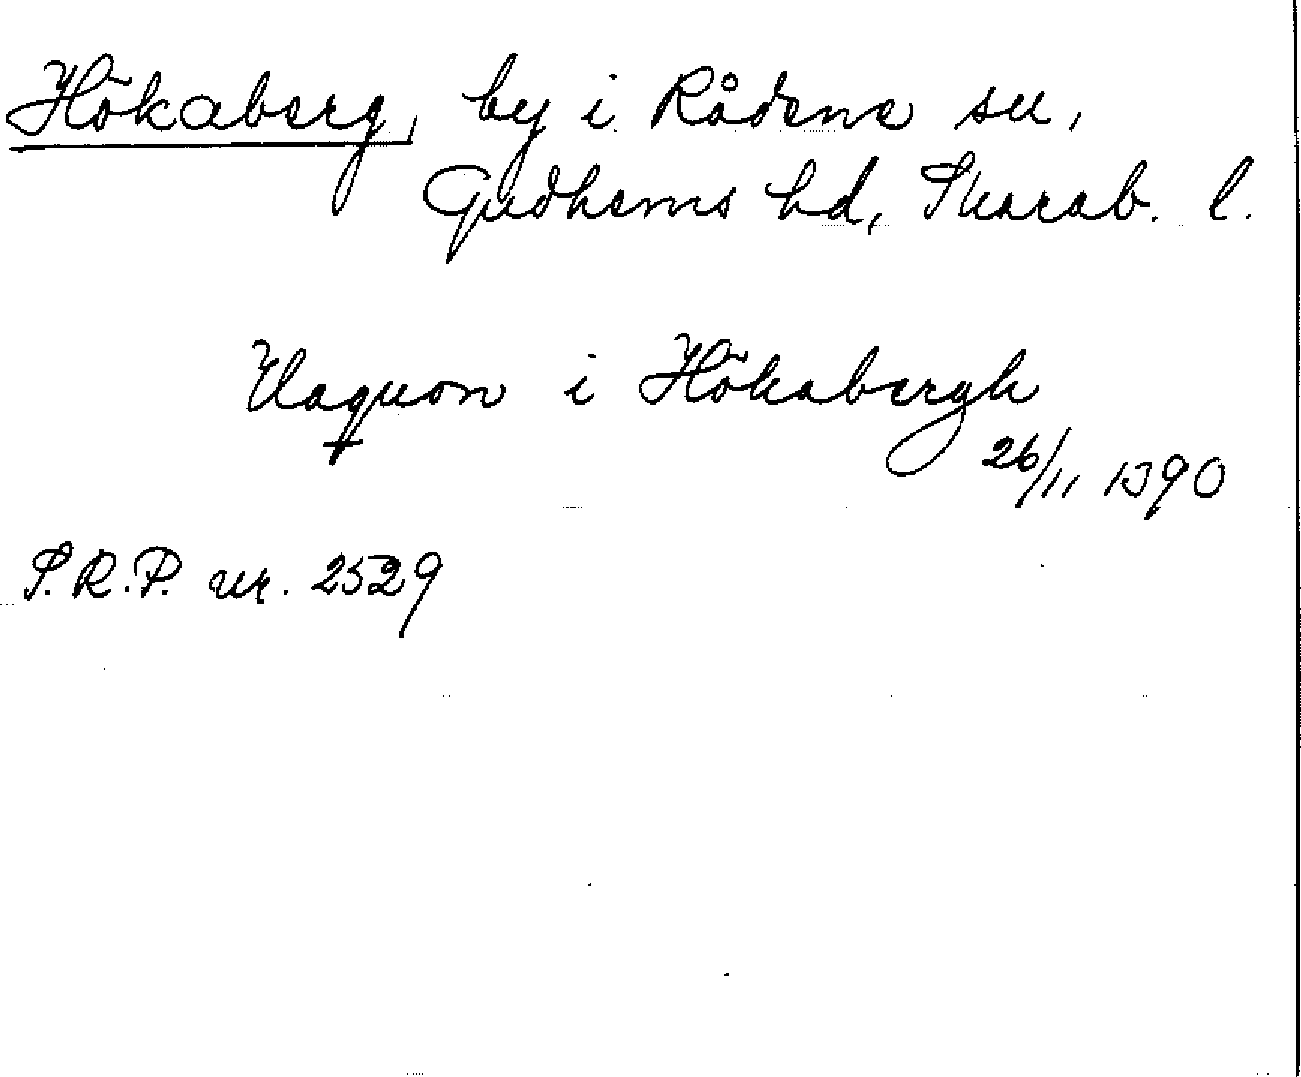 Hökaberg, by i Rådene sn,
Gudhems hd, Skarab. l.
Haquon i Hökabergh
26/11 1390
S.R.P. nr. 2529